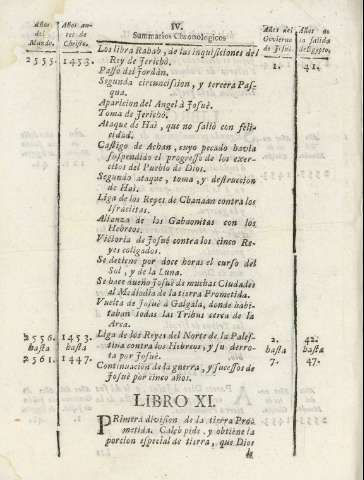 IV.
Summarios Chronologicos
Años del Mundo.
Años antes de Christo.
Años del Govierno de Josuè.
Años de la salida de Egypto.
2555. 1453.
1. 41.
Los libra Rahab, de las inquisiciones del
Rey de Jerichò.
Passo del Jordàn.
Segunda circuncision, y tercera Pas-
qua.
Aparicion del Angel à Josuè.
Toma de Jerichò.
Ataque de Hai, que no saliò con feli-
cidad.
Castigo de Achan, cuyo pecado havia
suspendido el progresso de los exer-
citos del Pueblo de Dios.
Segundo ataque, toma, y destruccion
de Hai.
Liga de los Reyes de Chanaan contra los
Israèlitas.
Alianza de los Gabaonitas con los
Hebreos.
Victoria de Josuè contra los cinco Re-
yes coligados.
Se detiene por doce horas el curso del
Sol, y de la Luna.
Se hace dueño Josuè de muchas Ciudades
al Mediodia de la tierra Prometida.
Vuelta de Josuè à Galgala, donde habi-
taban todas las Tribus acerca de la
Arca.
2556. 1453. Liga de los Reyes del Norte de la Pales- 2. 42.
hasta hasta tina contra los Hebreos, y su derro- hasta hasta
2561. 1447. ta por Josuè. 7. 47.
Continuacion de la guerra, y sucessos de
Josuè por cinco años.
LIBRO XI.
PRimera division de la tierra Pro-
metida. Caleb pide, y obtiene la
porcion especial de tierra, que Dios